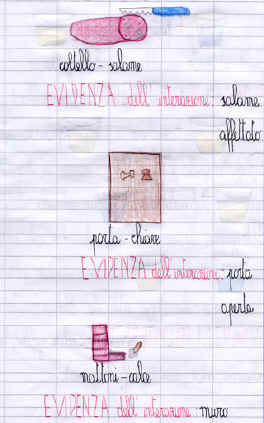 coltello - salame
EVIDENZA dell'interazione: salame
affettato
porta - chiave
EVIDENZA dell'interazione: porta
aperta
mattoni - calce
EVIDENZA dell'interazione: muro